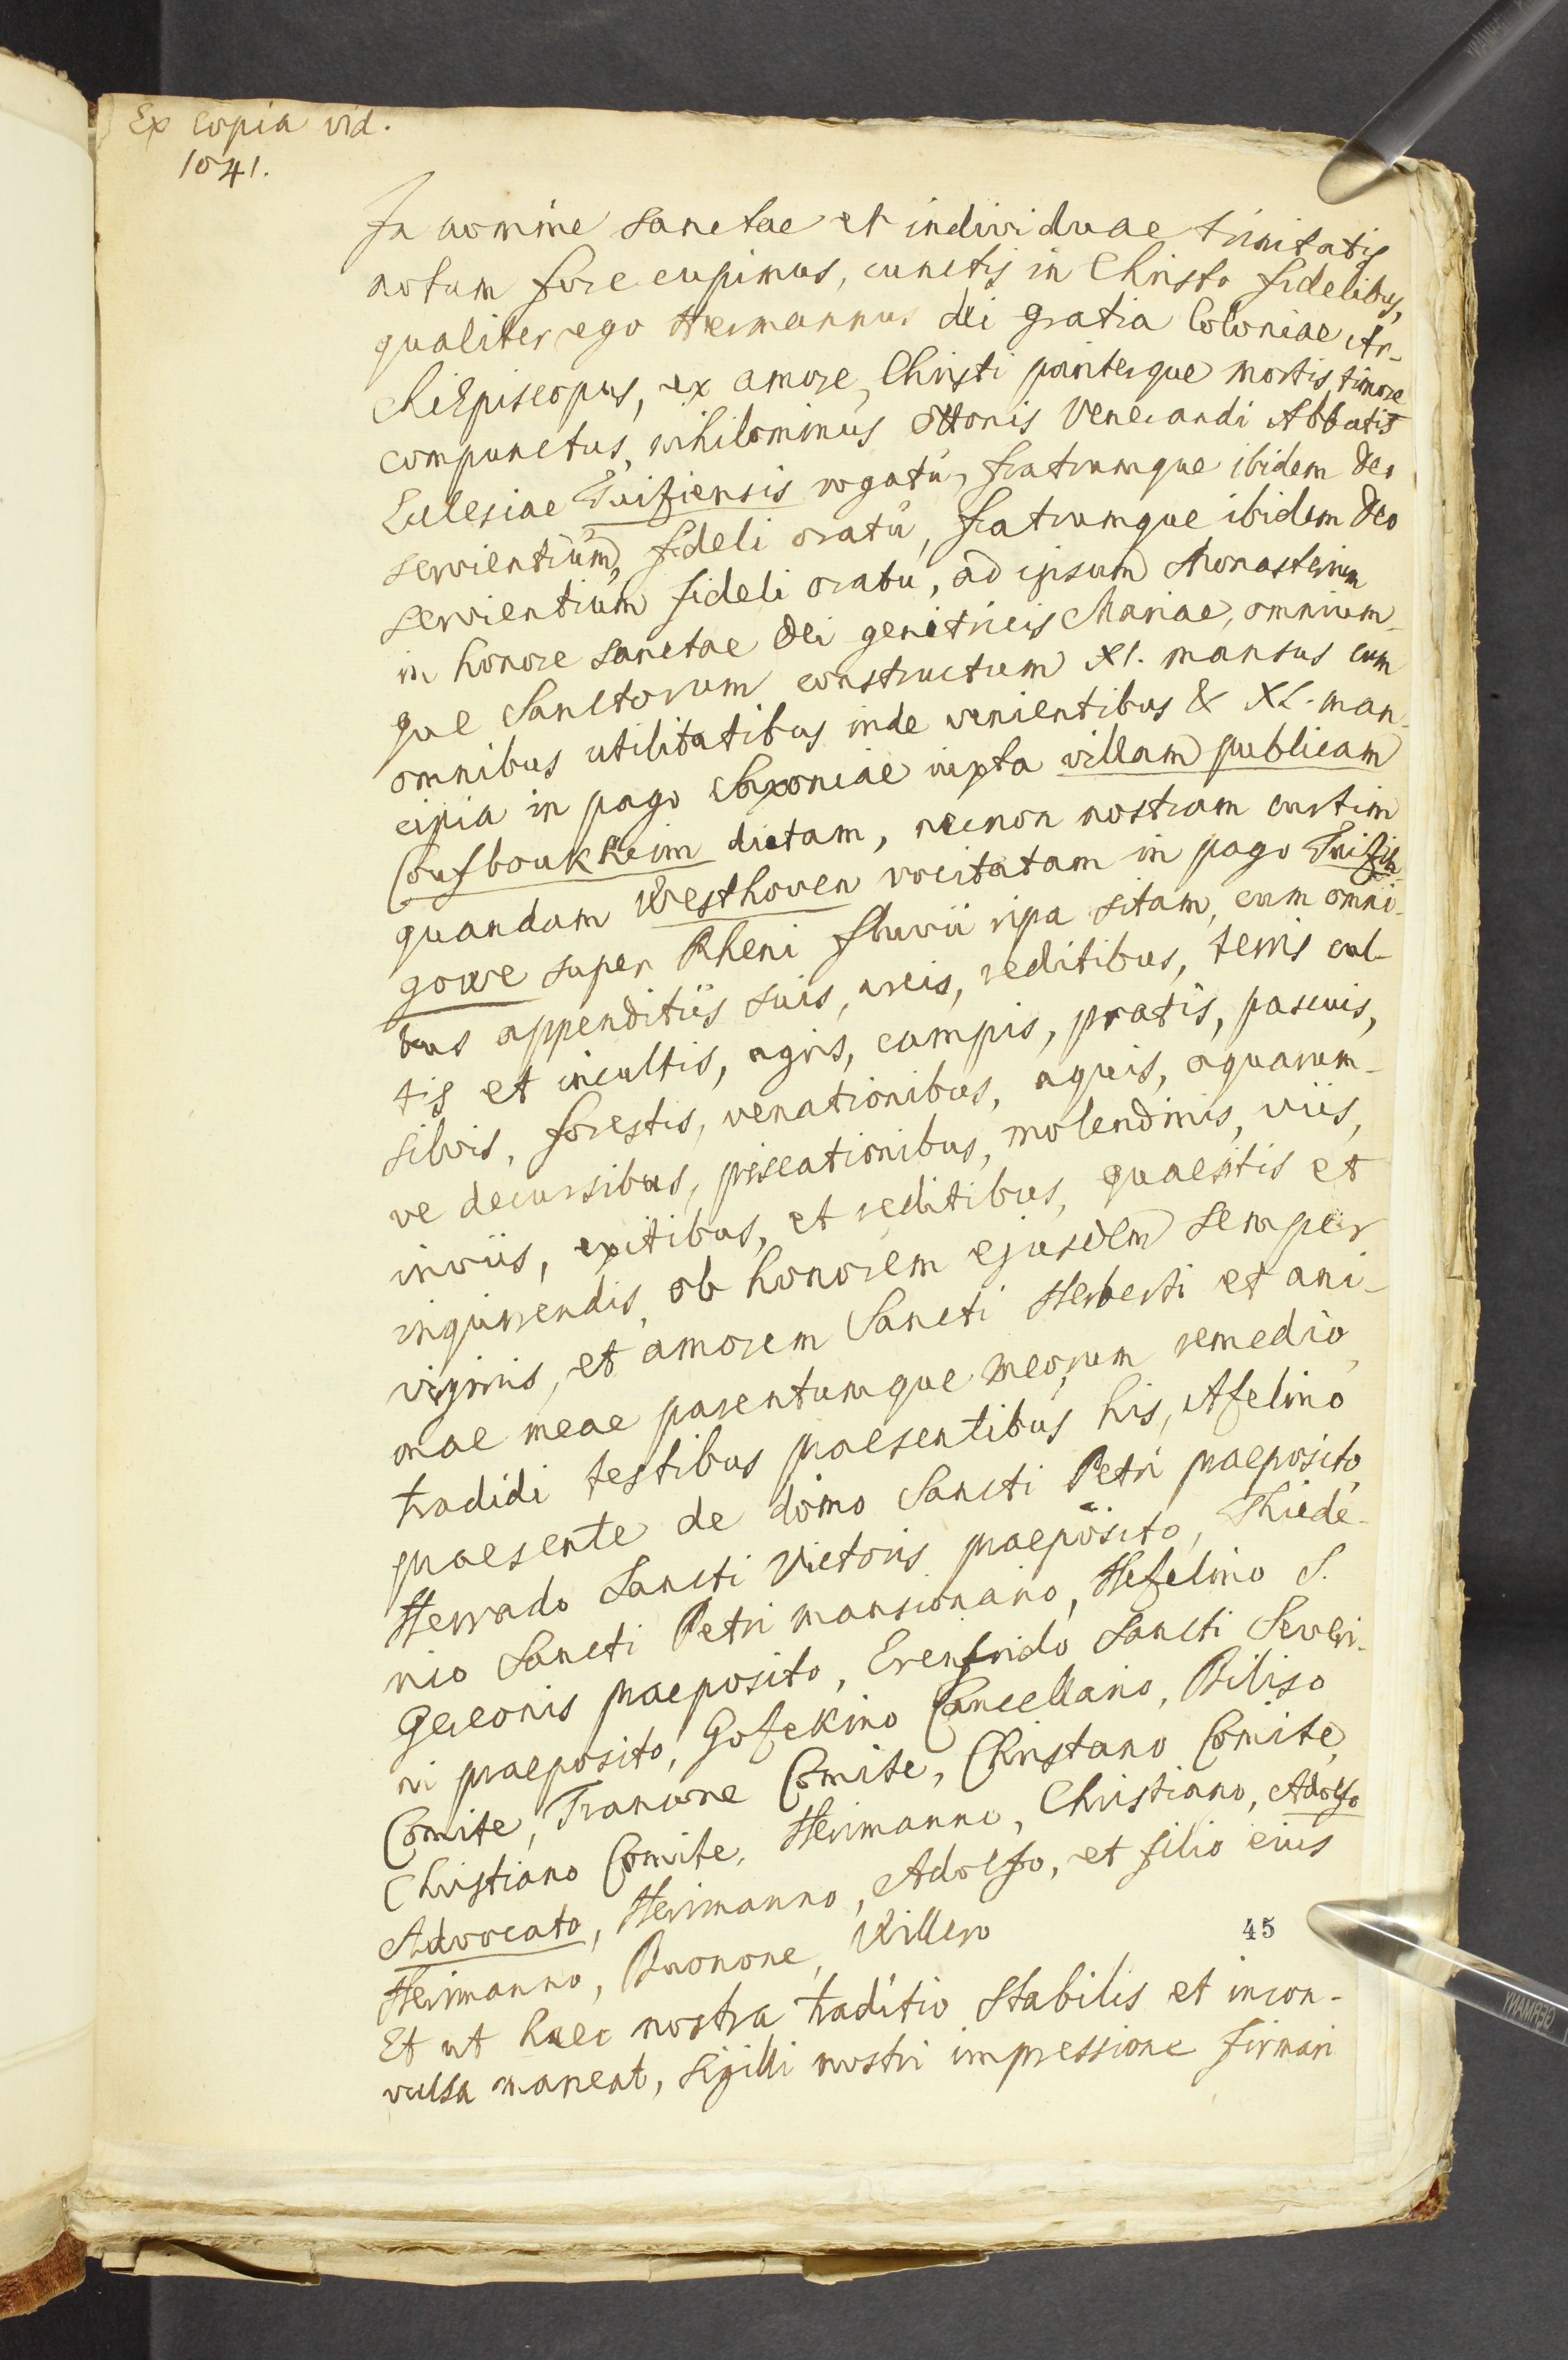 Ex copia vid.
1041.
In nomine sanctae et individuae trinitatis
notum fore cupimus, cunctis in Christo fidelibus,
qualiter ego Hermannus dei gratia Coloniae Ar-
chiEpiscopus, ex amore Christi pariterque mortis timore
compunctus, nihilominus Ottonis Venerandi Abbatis
Ecclesiae Tuitiensis rogatu, fratrumque ibidem Deo
servientium, fideli oratu, fratrumque ibidem Deo
servientium fideli oratu, ad ipsum Monasterium
in honore sanctae Dei genitricis Mariae, omnium-
que Sanctorum constructum XI. mansus cum
omnibus utilitatibus inde venientibus & XL. man-
cipia in pago Saxoniae iuxta villam publicam
Coufboukheim dictam, necnon nostram curtim
quandam Westhoven vocitatam in pago Tuitih-
gowe super Rheni fluvii ripa sitam, cum omni-
bus appenditiis suis, areis, reditibus, terris cul-
tis et incultis, agris, campis, pratis, pascuis,
silvis, forestis, venationibus, aquis, aquarum-
ve decursibus, piscationibus, molendinis, viis,
inviis, exitibus, et reditibus, quaesitis et
inquirendis, ob honorem ejusdem semper
virginis, et amorem Sancti Herberti et ani-
mae meae parentumque meorum remedio,
tradidi testibus praesentibus his, Azelino
praesente de domo Sancti Petri praeposito,
Herrado Sancti Victoris praeposito, Thiede-
rico Sancti Petri mansionario, Hezelino S.
Gereonis praeposito, Erenfrido Sancti Severi-
ni praeposito, Gozekino Cancellario, Biliso
Comite, Franone Comite, Christano Comite,
Christiano Comite, Herimanno, Christiano, Adolfo
Advocato, Herimanno, Adolfo, et filio eius
Herimanno, Buonone, Willero
45
Et ut haec nostra traditio stabilis et incon-
vulsa maneat, sigilli nostri impressione firmari